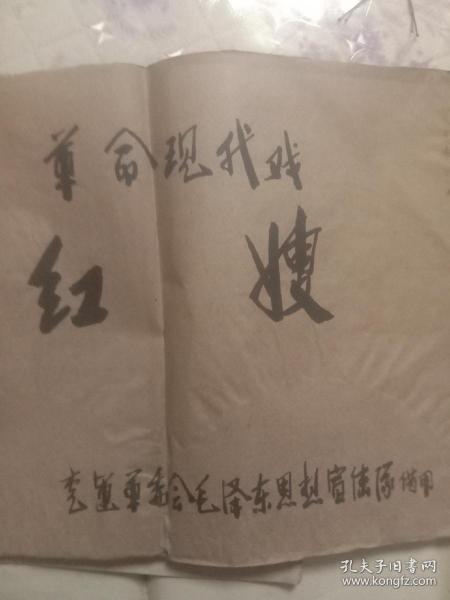 革命现代戏
红嫂
革委会毛泽东思想宣传队备用
孔夫子旧书网
www.kongfz.com